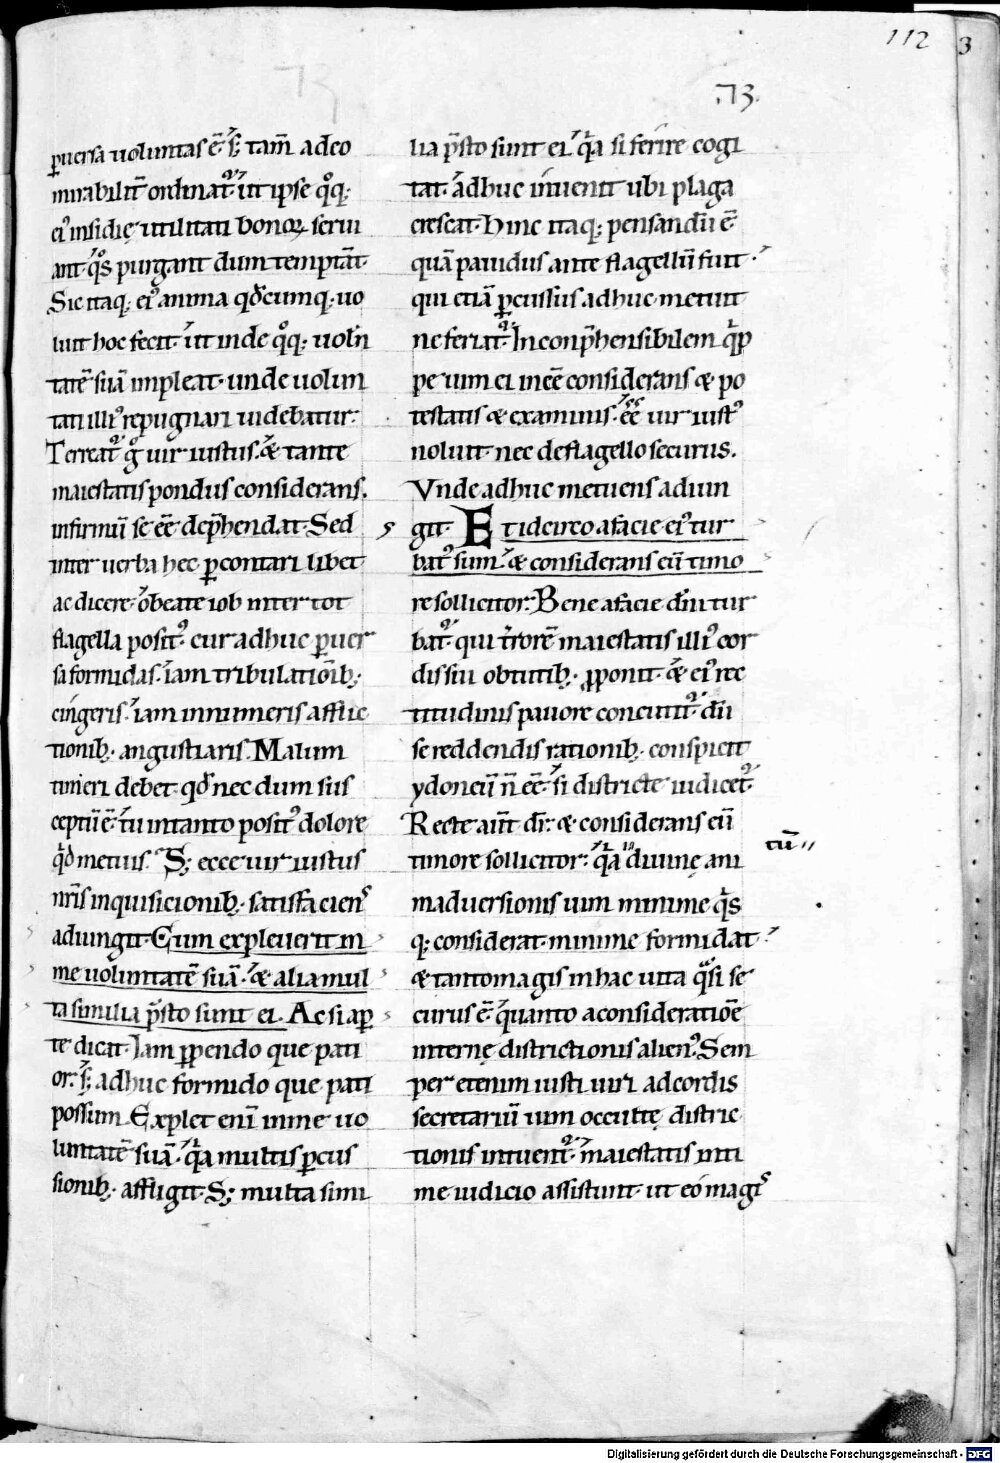 112
3
73.
ꝑuersa uoluntas ē. s; tam̄ a deo
mirabilit̄ ordinat᷒. ut ipse qͦq;
ei᷒ insidię utilitati bonoꝝ serui
ant. qͦs purgant dum temptāt.
Sic itaq; ei᷒ anima qđcumq; uo
luit hoc fecit. ut inde qͦq; uolū
tatē suā impleat. unde uolun
tati illi᷒ repugnari uidebatur.
Terreat᷒ gͦ uir iustus. & tante
maiestatis pondus considerans.
infirmū se eē dep̄hendat. Sed
inter uerba hec ꝑcontari libet
ac dicere. o beate iob inter tot
flagella posit᷒. cur adhuc ꝑuer
sa formidas. iam tribulationib;
cingeris. iam innumeris afflic
tionib; angustiaris. Malum
timeri debet. qđ nec dum sus
ceptū ē. tu in tanto posit᷒ dolore
qͥd metuis. S; ecce uir iustus
nr̄is inquisicionib; satisfaciens
adiungit. Cum expleuerit in
me uoluntatē suā. & alia mul
ta similia p̄sto sunt ei. Ac si aꝑ
te dicat. Iam ꝑpendo que pati
or. s; adhuc formido que pati
possum. Explet eni in me uo
luntatē suā. qͥa multis ꝑcus
sionib; affligit. S; multa simi
lia p̄sto sunt ei. qͥa si ferire cogi
tat. adhuc inuenit ubi plaga
crescat. Hinc itaq; pensandū ē
quā pauidus ante flagellū fuit.
qui etiā ꝑcussus adhuc metuit
ne feriat᷒. Inconp̄hensibilem qͥꝑ
pe uim ei inee considerans & po
testatis & examinis. eē uir iust᷒
noluit. nec de flagello securus.
Vnde adhuc metuens adiun
git. Et idcirco a facie ei᷒ tur
bat᷒ sum. & considerans eū timo
re sollicitor. Bene a facie dn̄i tur
bat᷒. qui t̄rorē maiestatis illi᷒ cor
dis sui obtutib; ꝓponit. & ei᷒ rec
titudinis pauore concutit᷒. dū
se reddendis rationib; conspicit
ydoneū n̄ eē. si districte iudicet᷒.
Recte aūt dr̄. & considerans eū
timore sollicitor. qͥa diuinę ani
tū
maduersionis uim minime qͥs
q; considerat. minime formidat.
& tanto magis in hac uita qͣsi se
curus ē. quanto a consideratiōe
internę districtionis alien᷒. Sem
per etenim iusti uiri ad cordis
secretariū uim occultę distric
tionis intuent᷒. maiestatis inti
me iudicio assistunt. ut eo magis
Digitalisierung gefördert durch die Deutsche Forschungsgemeinschaft - DFG